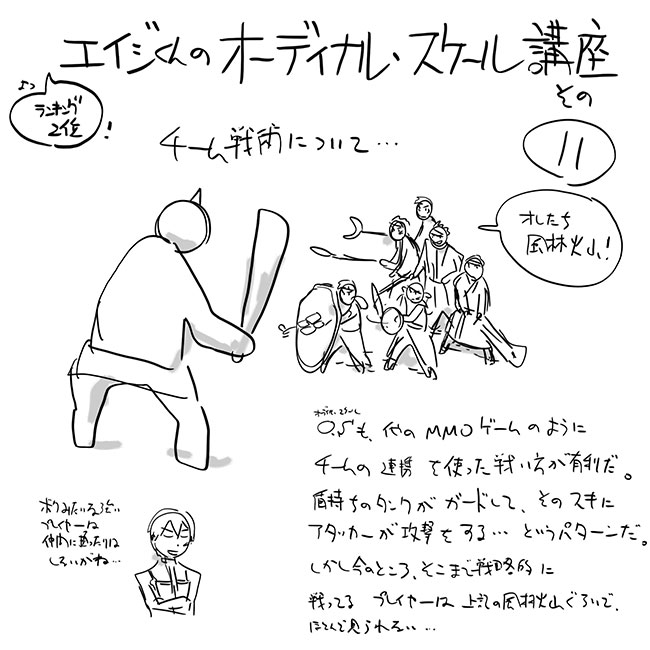 エイジくんのオーディナル・スケール講座
その
11
よっ
ランキング
2位
!
チーム戦術について…
オレたち
風林火山!
オーディナル・スケール
O.Sも、他のMMOゲームのように
チームの連携を使った戦い方が有利だ。
盾持ちのタンクがガードして、そのスキに
アタッカーが攻撃をする…というパターンだ。
しかし今のところ、そこまで戦略的に
戦ってるプレイヤーは上記の風林火山ぐらいで、
ほとんど見られない…
ボクみたいな強い
プレイヤーは
仲間に頼ったりは
しないがね…